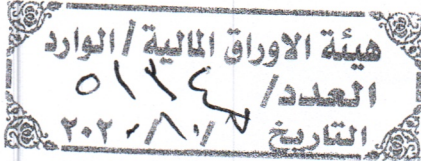 هيئة الاوراق المالية / الوارد
العدد/
التاريخ / ١٠ / ٢٠٢٠